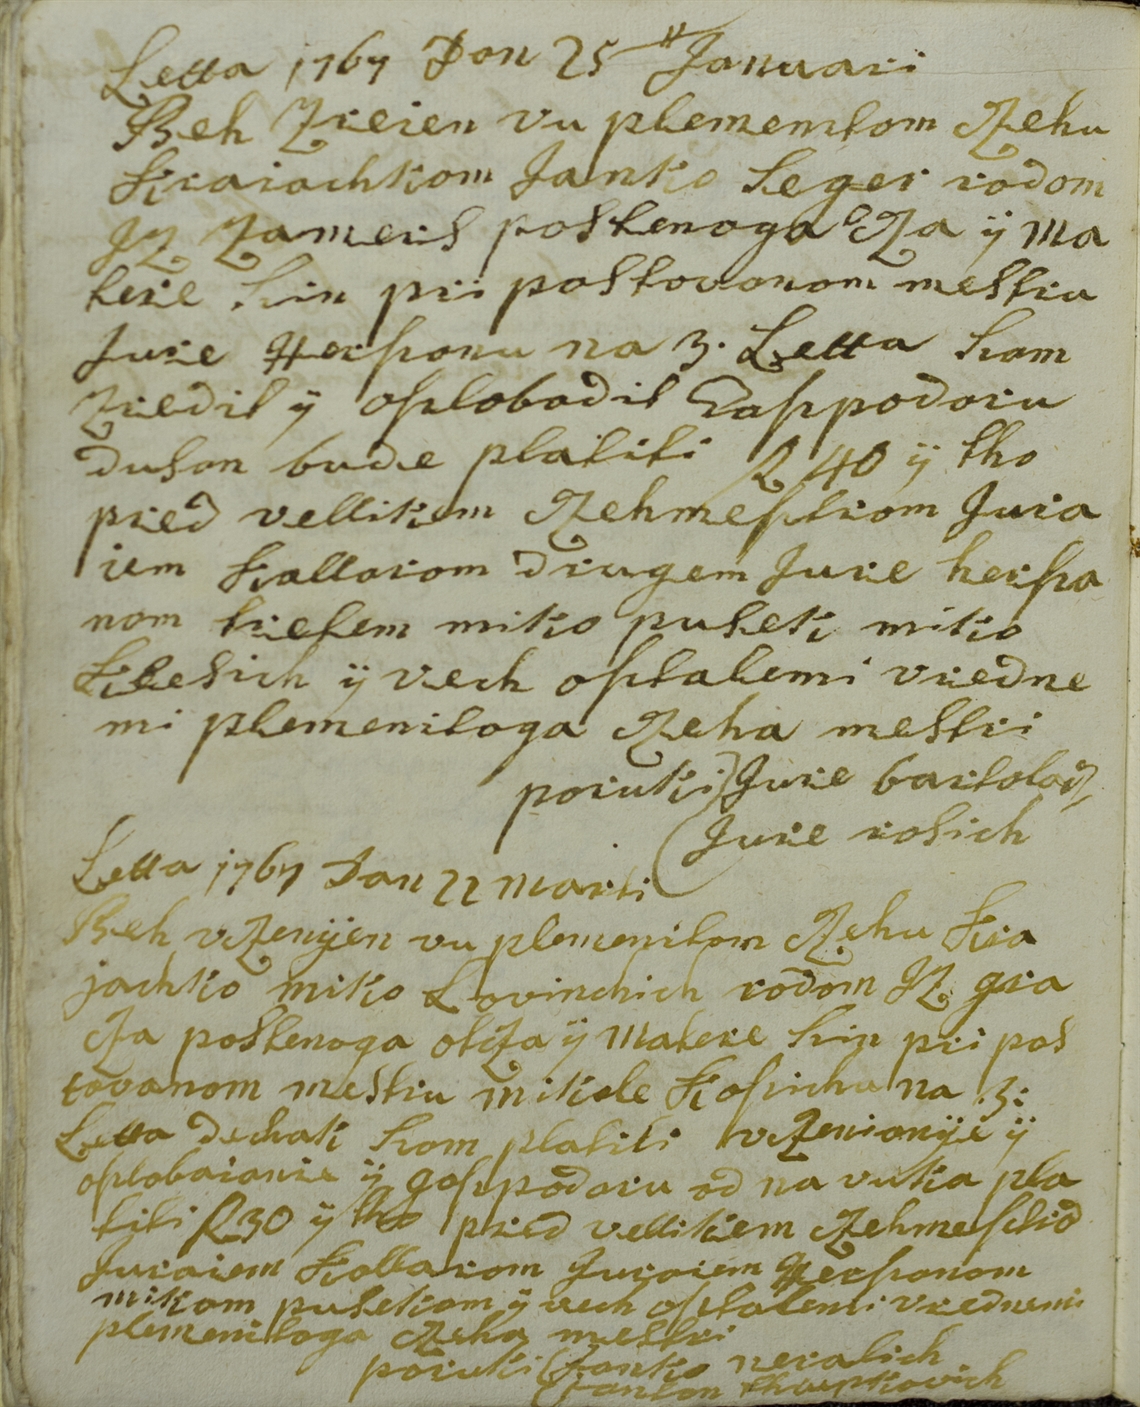 Letta 1767 Dan 25 Januari
Beh Zreien vu plemenitom Czehu
Kraiachkom Janko Seger rodom
Iz Zamersk postenoga Otcza ÿ Ma
tere Szin pri postovanom mestru
Jure Herszonu na 3. Letta szam
Zredil ÿ oszlobodil Gaszpodaru
dusan bude platiti R 40 ÿ tho
pred vellikem Czehmesztrom Jura
iem Kollarom drugem Jure hersza
nom tretem miko pusek miko
Klesich ÿ vsech osztalemi vredne
mi plemenitoga Czeha mestri
poruki Jure bartolacz
Jure rosich
Letta 1767 Dan 22 Marti
Beh vczenÿen vu plemenitom Czehu Kra
jachko miko Lovinchich rodom Iz gra
cza postenoga otcza ÿ Matere Szin pri pos
tovanom mestru mikole Koszichu na 3:
Letta dechak szam platiti vczenianÿe ÿ
oszlobaianie ÿ goszpodaru od navuka pla
titi R 30 ÿ tho pred vellikiem Czehmestrod
Juraiem Kollarom Juraiem Herszonom
mikom pusekom ÿ vsech osztalemi vrednemi
plemenitoga Czeha mestri
poruki Janko neralich